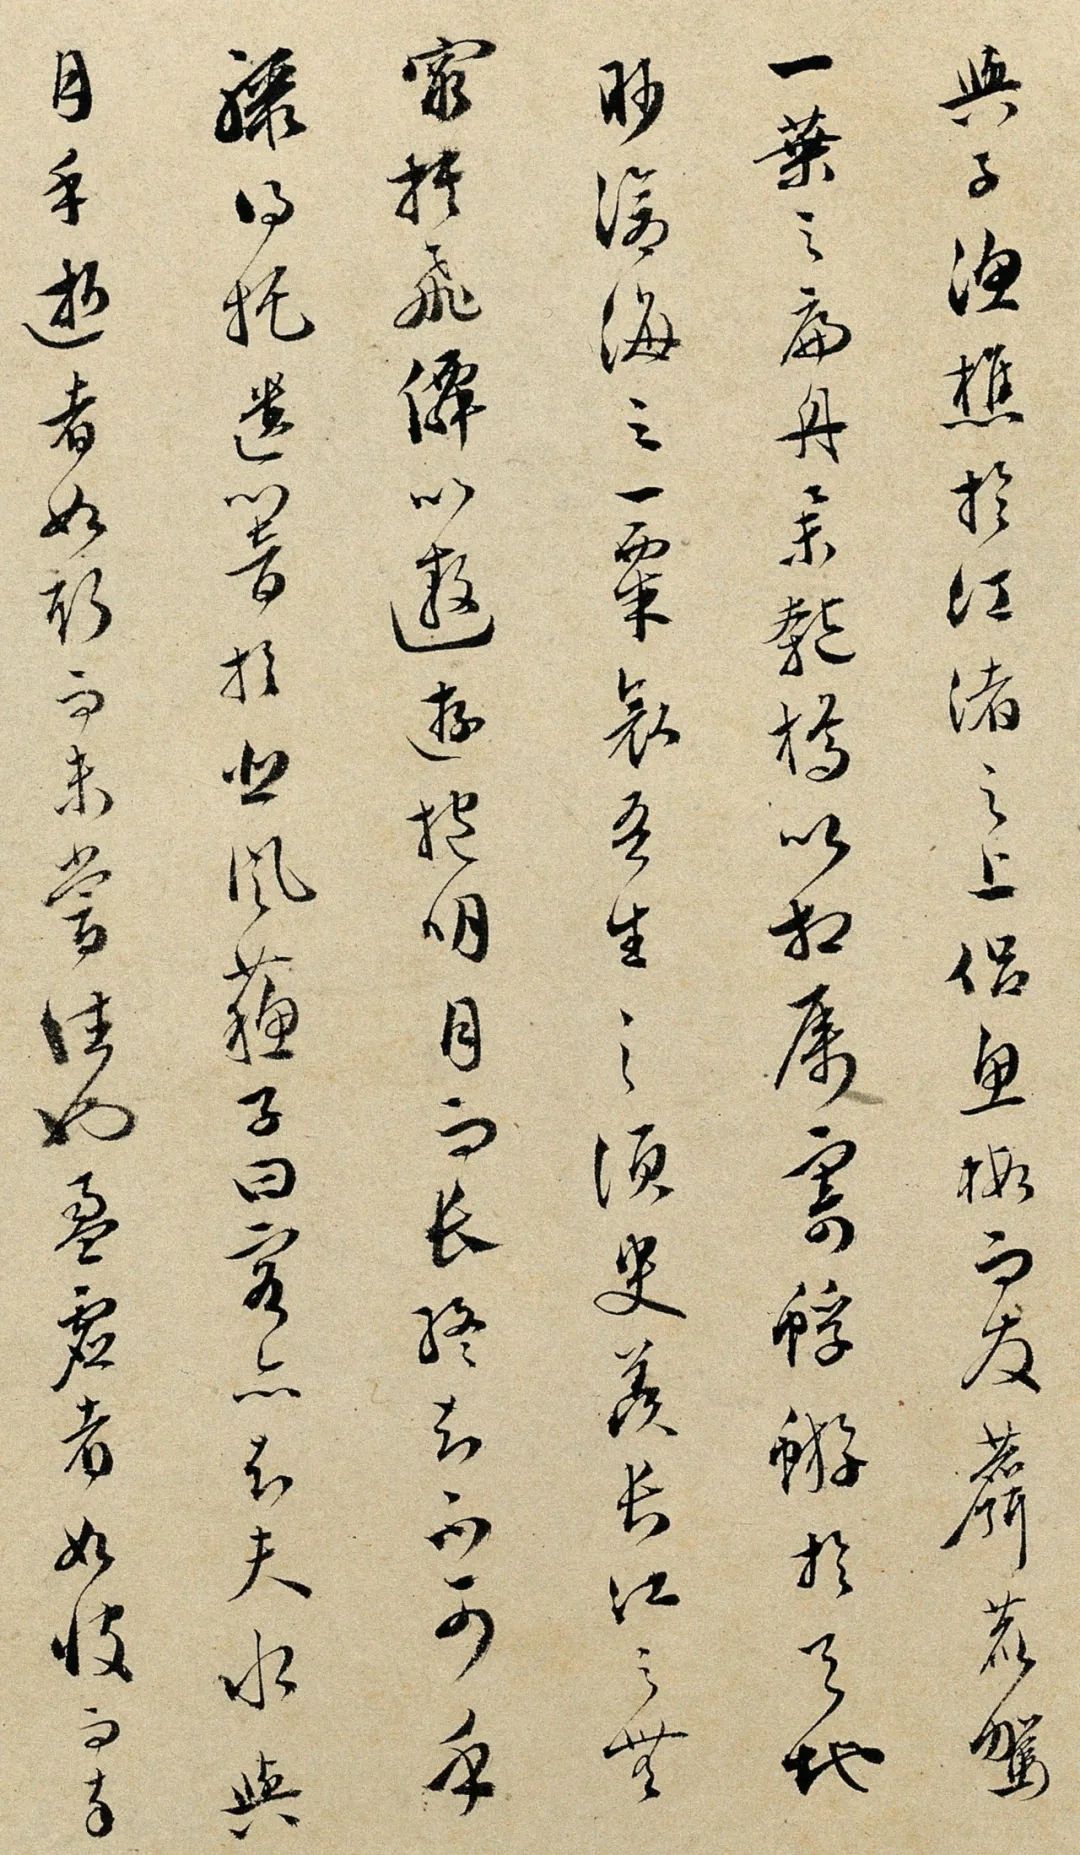 與子漁樵於江渚之上侶魚蝦而友麋鹿駕
一葉之扁舟舉匏樽以相屬寄蜉蝣於天地
眇滄海之一粟哀吾生之須臾羨長江之無
窮挾飛僊以遨遊抱明月而長終知不可乎
驟得托遺響於悲風蘇子曰客亦知夫水與
月乎逝者如斯而未嘗往也盈虛者如彼而卒